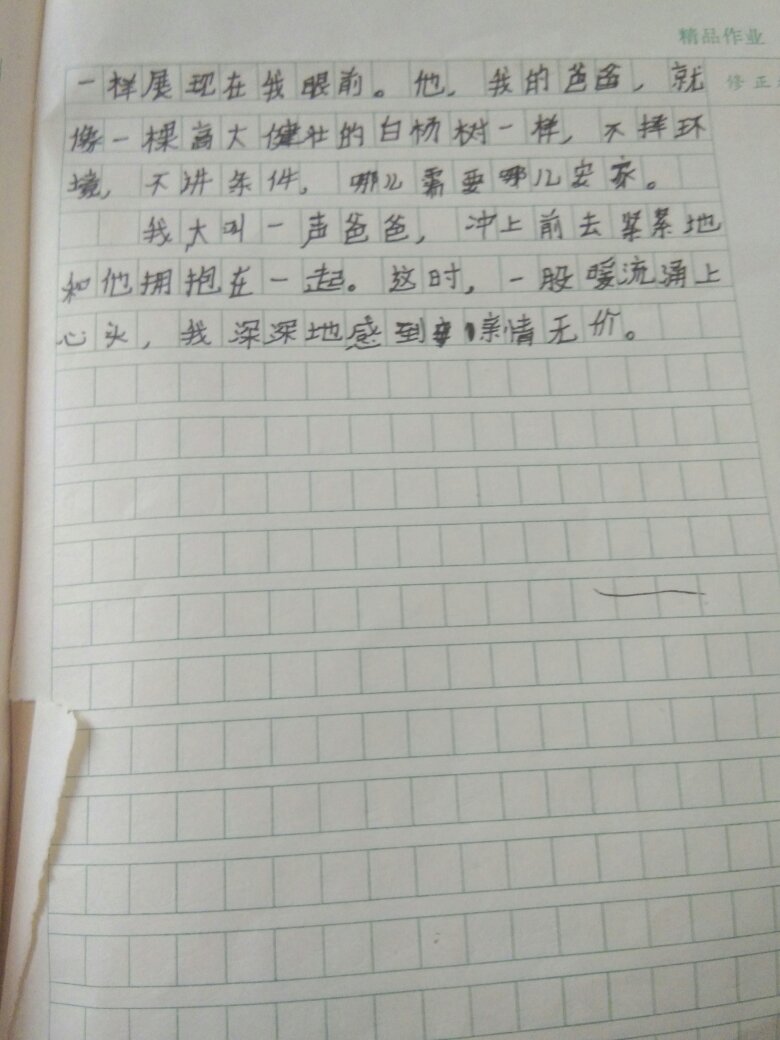 精品作业
修正
一样展现在我眼前。他，我的爸爸，就
像一棵高大健壮的白杨树一样，不择环
境，不讲条件，哪儿需要哪儿安家。
我大叫一声爸爸，冲上前去紧紧地
和他拥抱在一起。这时，一股暖流涌上
心头，我深深地感到亲情无价。